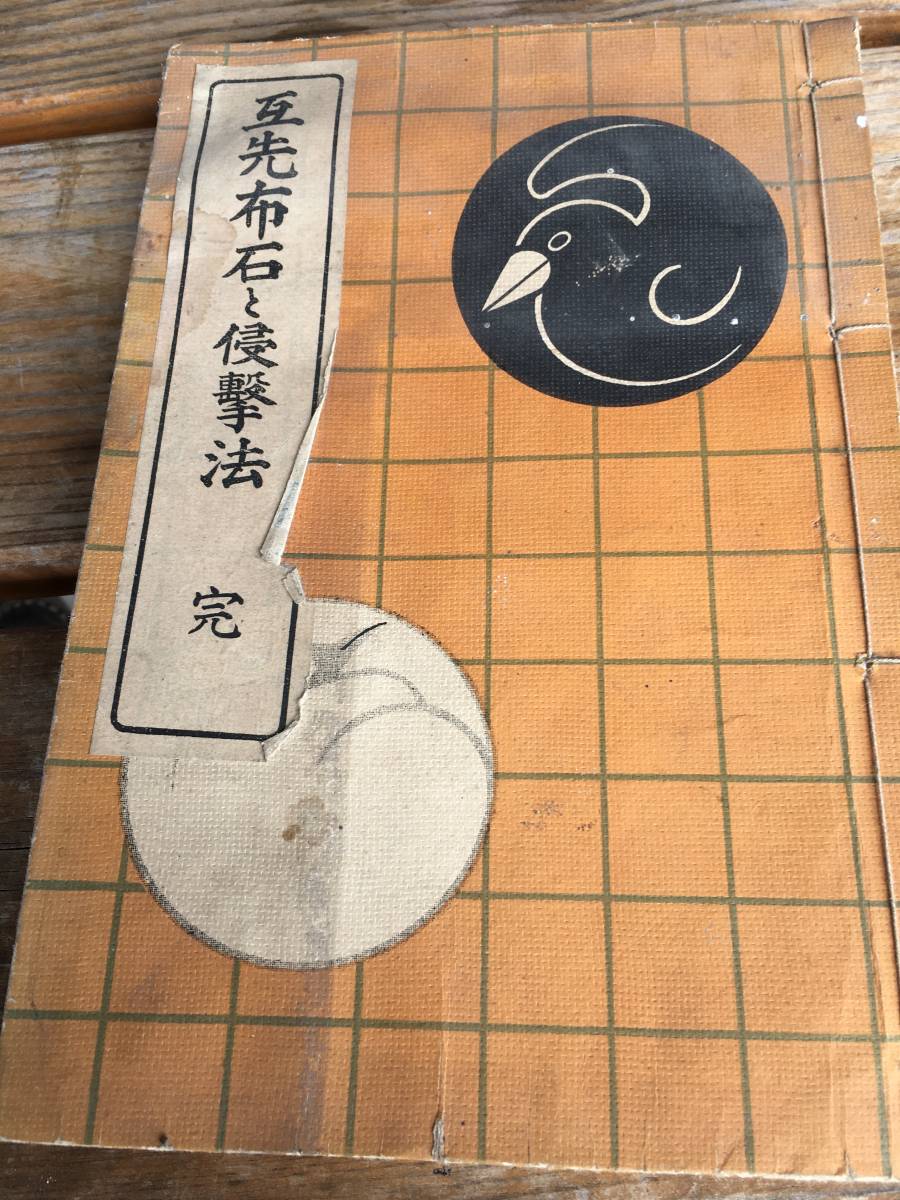 互先布石と侵擊法
完